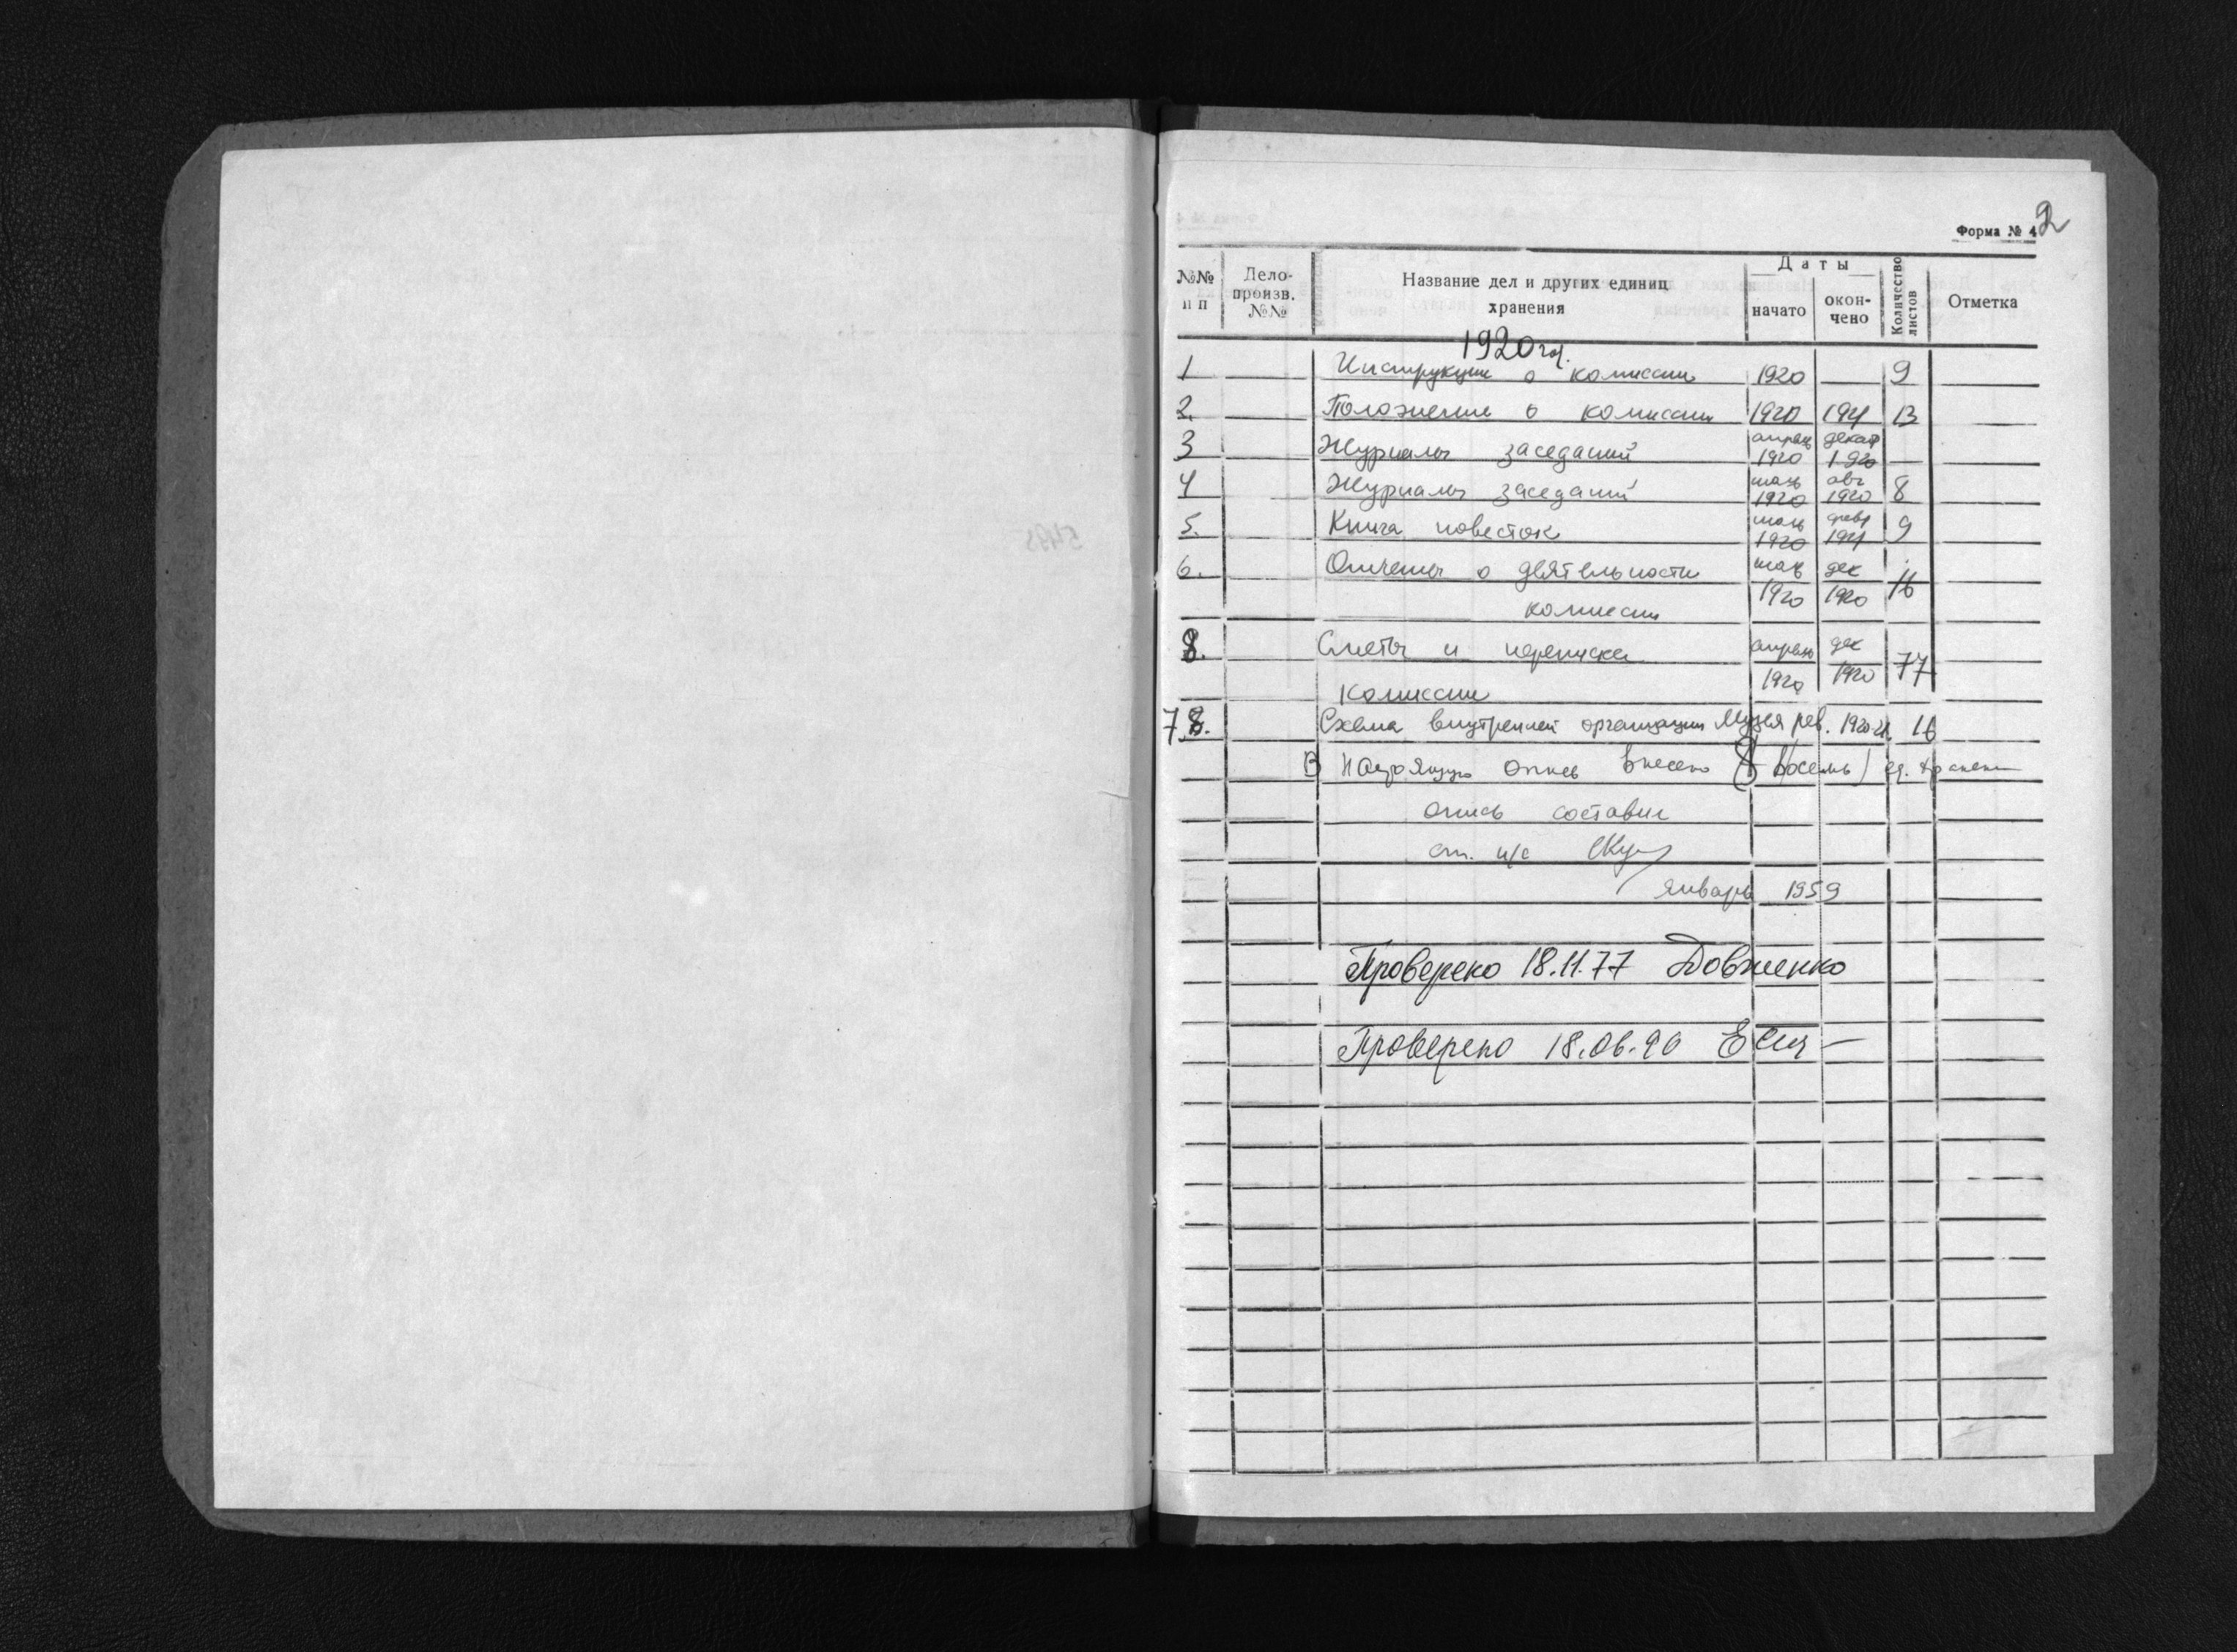 2
Форма № 4
№№ п п
Дело-произв. №№
Название дел и других единиц хранения
Даты
начато
окончено
Количество листов
Отметка
1920 год.
1 Инструкции о комиссии 1920 — 9
2. Положение о комиссии 1920 1921 13
3 Журналы заседаний апрель 1920 декабр 1920 —
4 Журналы заседаний 1920 авг 1920 8
5. Книга повесток 1920 февр 1921 9
6. Отчеты о деятельности 1920 дек 1920 16
комиссии
8. Сметы и переписка апрель 1920 дек 1920 77
комиссии
7 8. Схема внутренней организации Музея рев. 1920-21 16
В настоящую опись внесено 8 (восемь) ед. хранен
опись составил
ст. н/с
январь 1959
Проверено 18.11.77 Довженко
Проверено 18.06.90